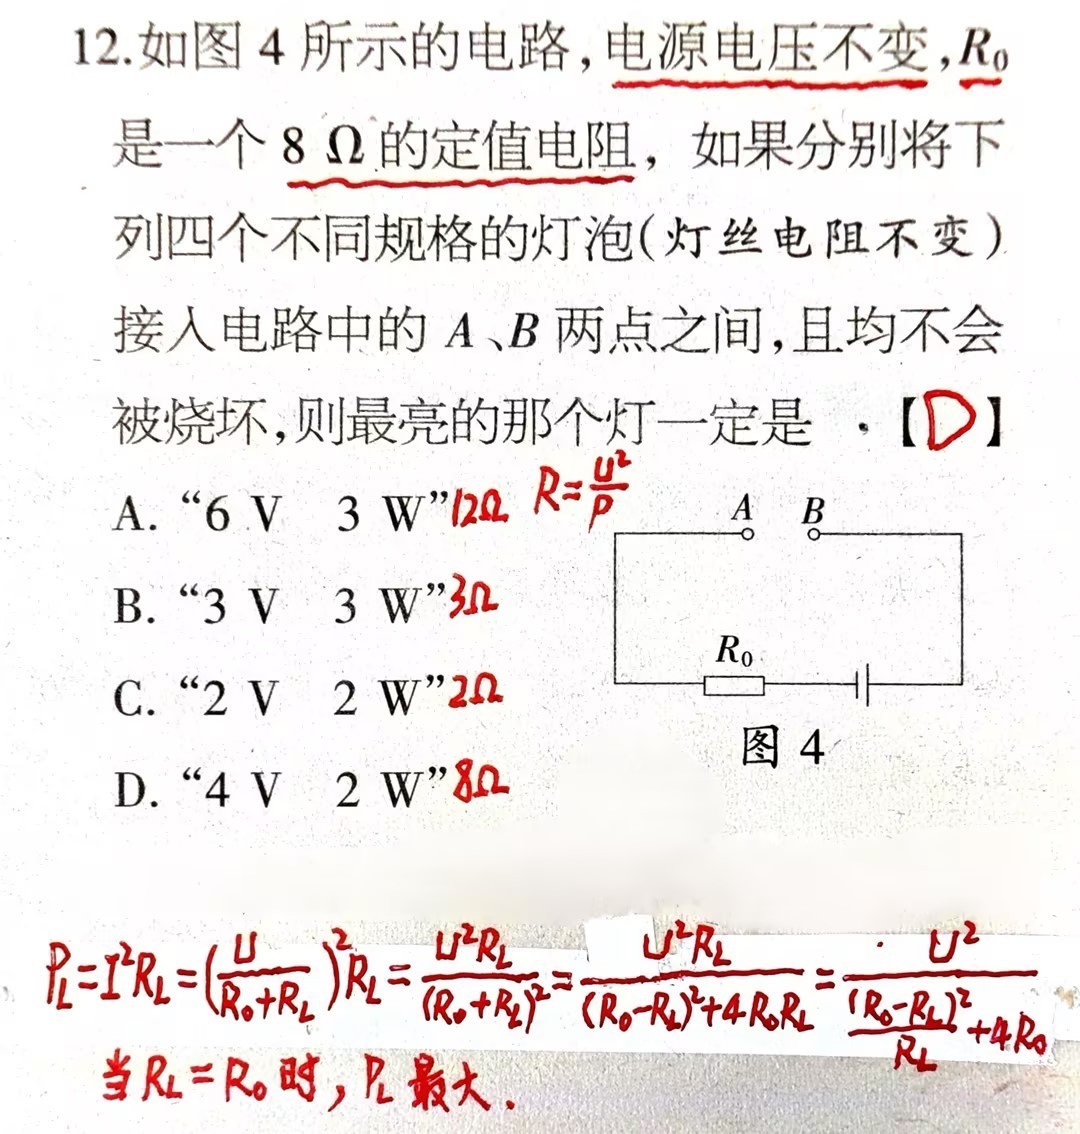 12.如图 4 所示的电路,电源电压不变,R₀
是一个 8 Ω 的定值电阻，如果分别将下
列四个不同规格的灯泡(灯丝电阻不变)
接入电路中的 A、B 两点之间,且均不会
被烧坏,则最亮的那个灯一定是 【D】
A. “6 V 3 W”12Ω R=U²/P
B. “3 V 3 W”3Ω
C. “2 V 2 W”2Ω
D. “4 V 2 W”8Ω
A B
R₀
图 4
P_L=I²R_L=(U/(R₀+R_L))²R_L=U²R_L/(R₀+R_L)²=U²R_L/((R₀-R_L)²+4R₀R_L)=U²/((R₀-R_L)²/R_L+4R₀)
当R_L=R₀时,P_L最大.